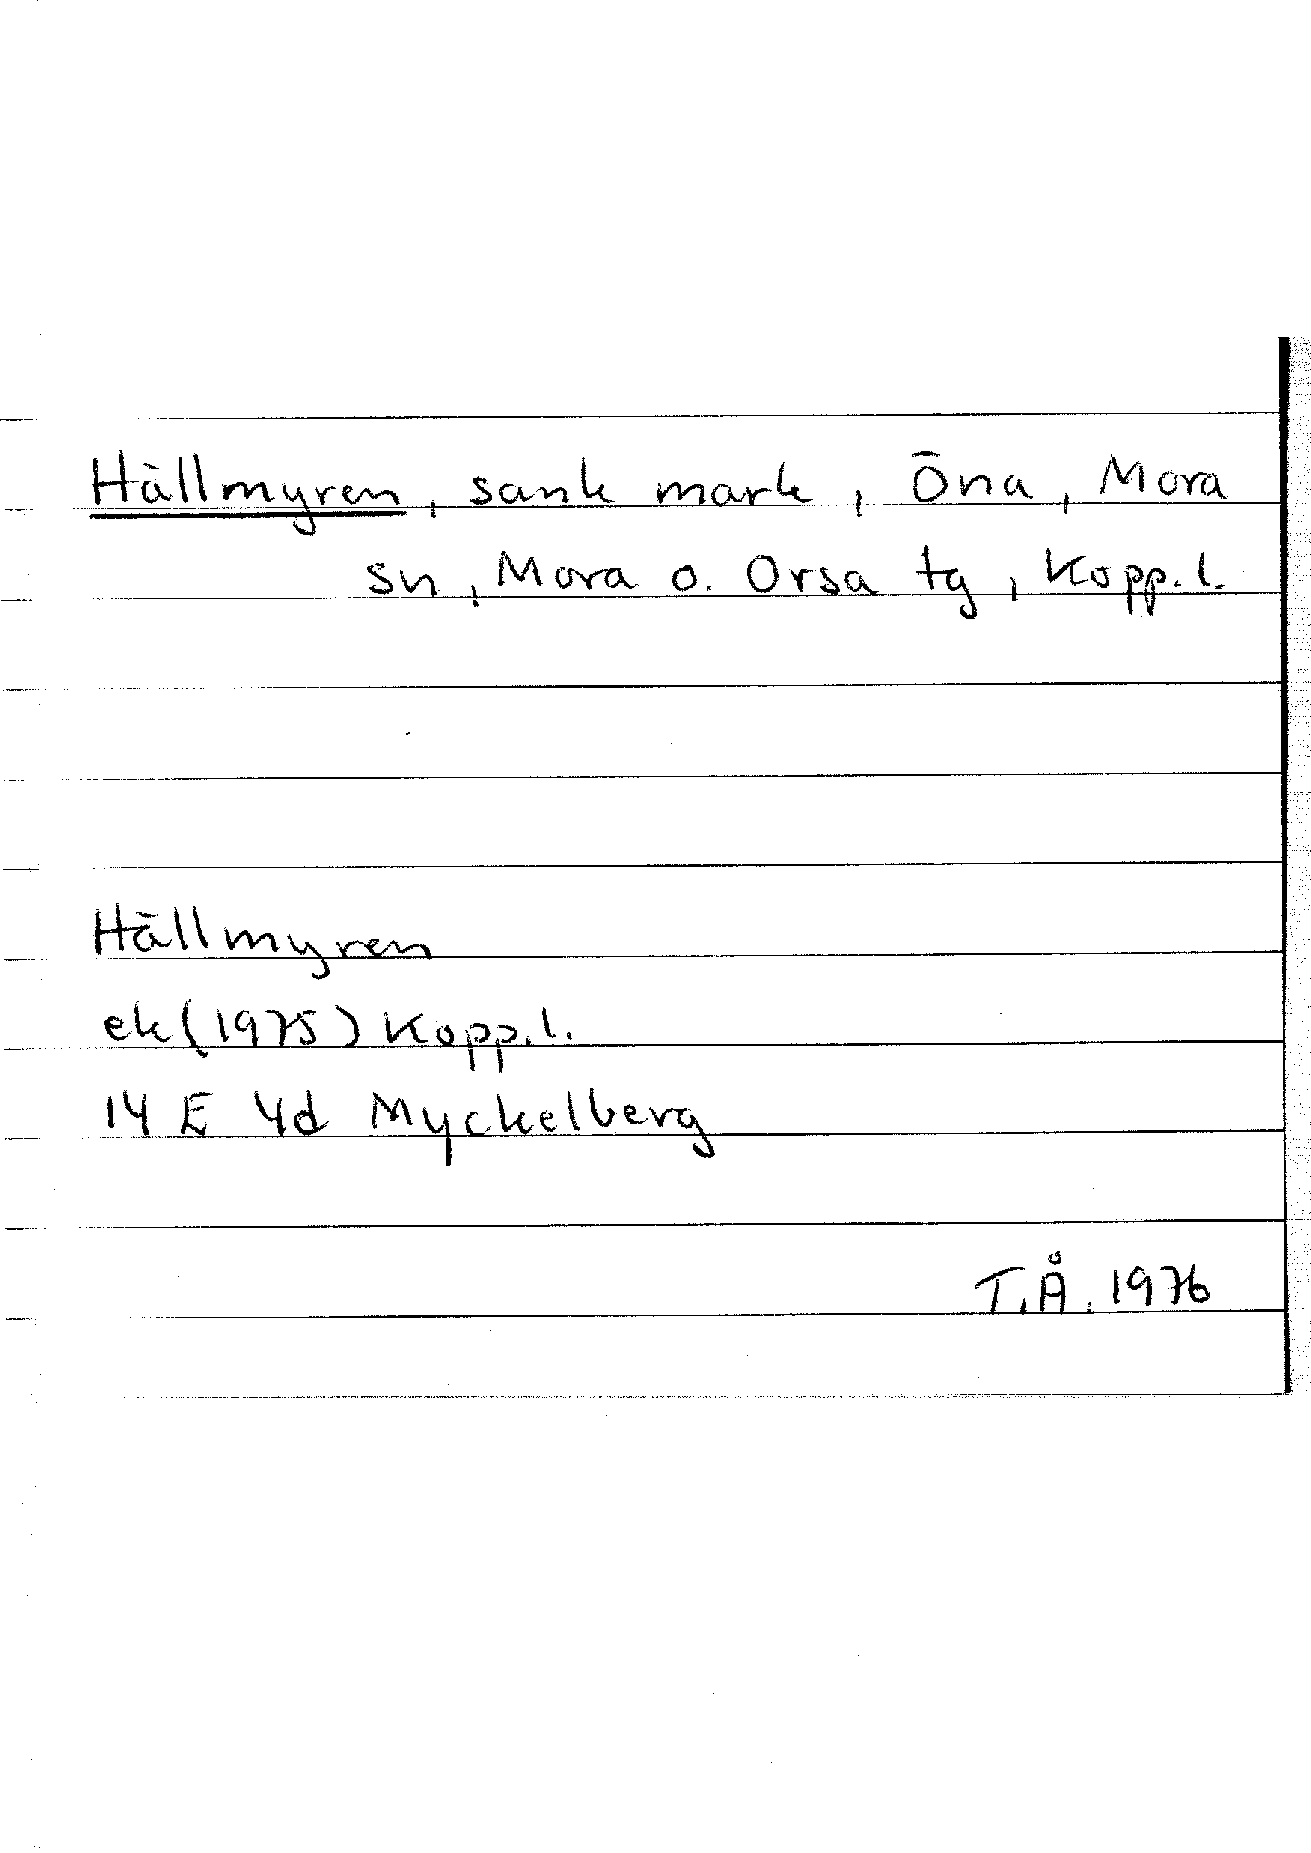 Hällmyren, sank mark, Öna, Mora
sn, Mora o. Orsa tg, Kopp.l.
Hällmyren
ek (1975) Kopp.l.
14 E 4d Myckelberg
T.Å. 1976